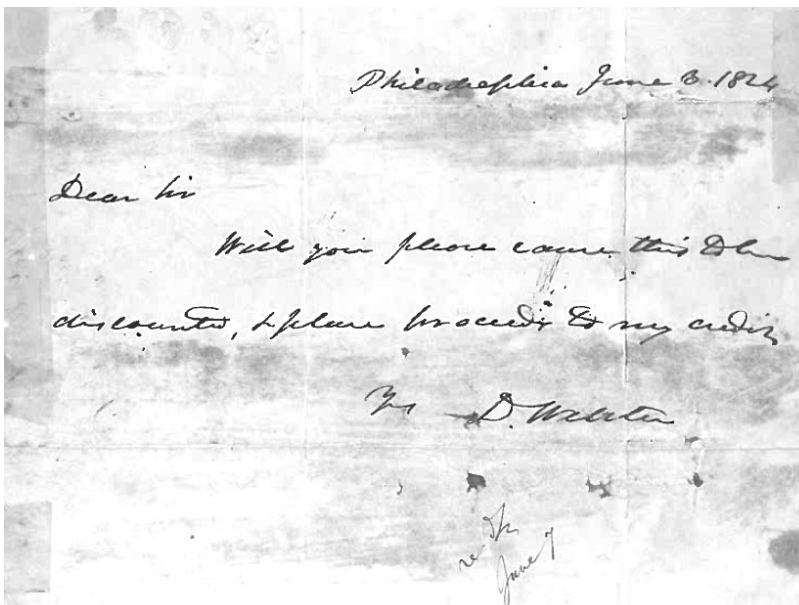 Philadelphia June 3. 1824
Dear Sir
Will you please cause this to be
discounted, & place proceeds to my credit
Yrs D. Webster
June 7